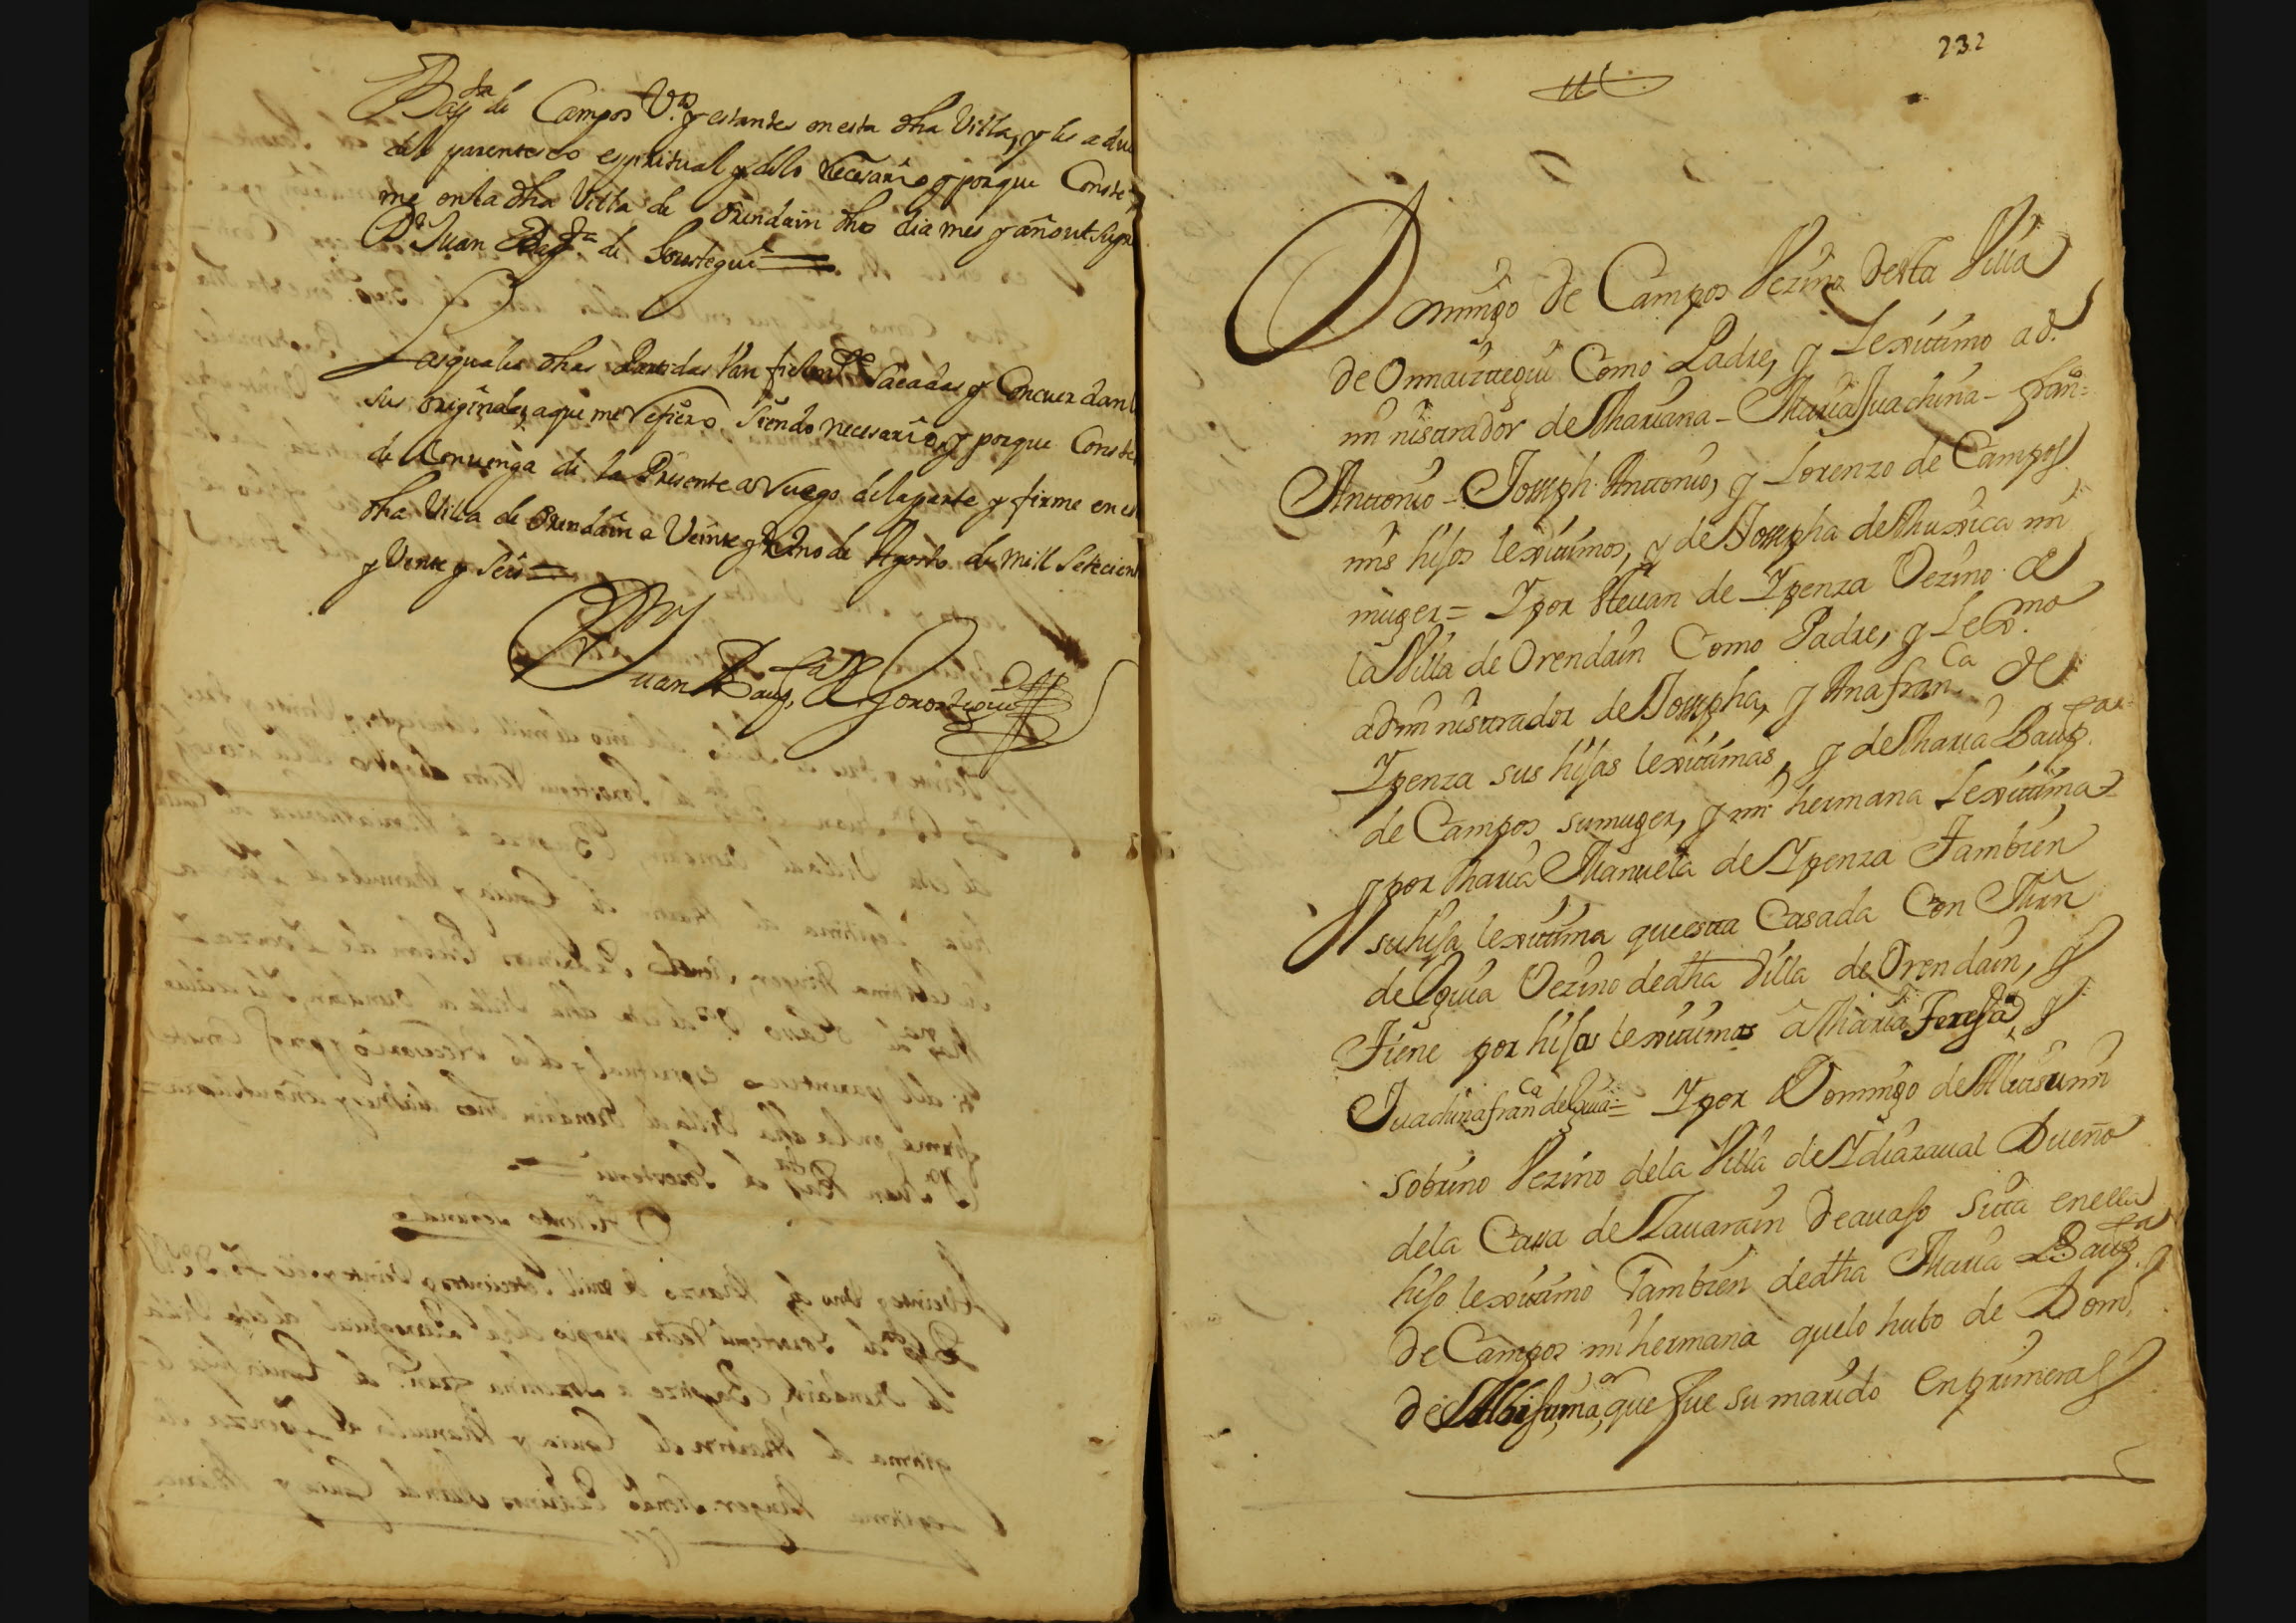 Bapta de Campos Vos y estantes en esta dha Villa, y les adve
del parentesco espiritual y delo necesario y porque Conste
me en la dha Villa de Orendain dho dia mes y año ut supra
Dn Juan Bapta de Gorostegui
Lasquales dhas Partidas Van fielmte Sacadas y Concuerdan
sus originales, aque me refiero Siendo necesario, y porque Conste
de Convenga di la Presente a Ruego dela parte y firme en es
dha Villa de Orendain a Veinte y Uno de Agosto de Mill Setecien
y Veinte y Seis
Juan Bauptta de Gorostegui
232
Domingo de Campos Vezino desta Villa
de Ormaiztegui Como Padre, y Lexitimo ad.
ministrador de Mariana - Maria Juachina - fran.
Antonio - Joseph Antonio, y Lorenzo de Campos
mis hijos lexitimos, y de Josepha de Muxica mi
muger = Y por Stevan de Ypenza Vezino de
la Villa de Orendain Como Padre, y Lexmo
administrador de Josepha, y Ana franca de
Ypenza sus hijas lexitimas, y de Maria Baup.ta
de Campos su muger, y mi hermana Lexitima
y por Maria Manuela de Ypenza Tambien
su hija lexitima que esta Casada Con Mrin
de Eguia Vezino de dha Villa de Orendain, y
Tiene por hijas lexitimas a Maria Teresa, y
Juachina franca de Eguia = Y por Domingo de Albisu mi
sobrino Vezino de la Villa de Ydiazaval Dueño
de la Casa de Navarain de avajo sitta en ella
hijo lexitimo Tambien de dha Maria Baup.ta
de Campos mi hermana que lo hubo de Dom.
de Albisu, maor que fue su marido en primeras